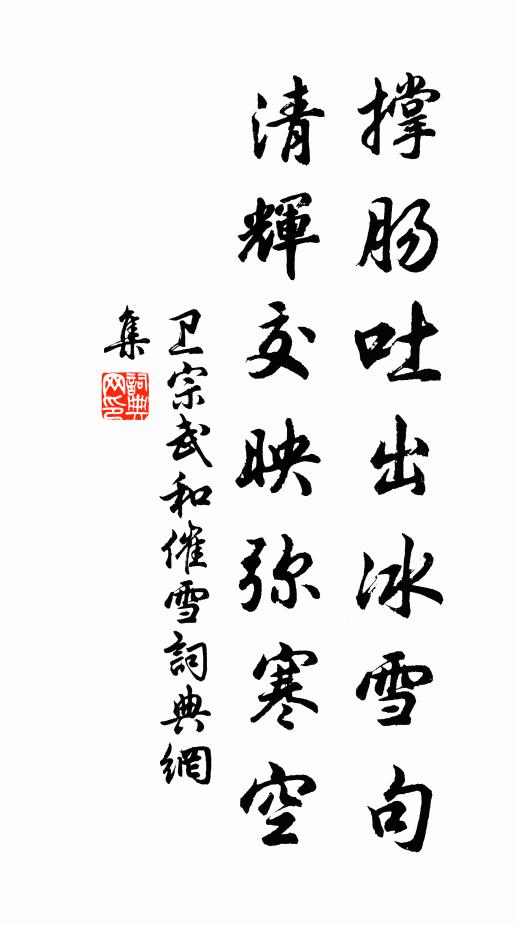 撑肠吐出冰雪句
清輝交映弥寒空
卫宗武和催雪詞典網
集
詞典网印